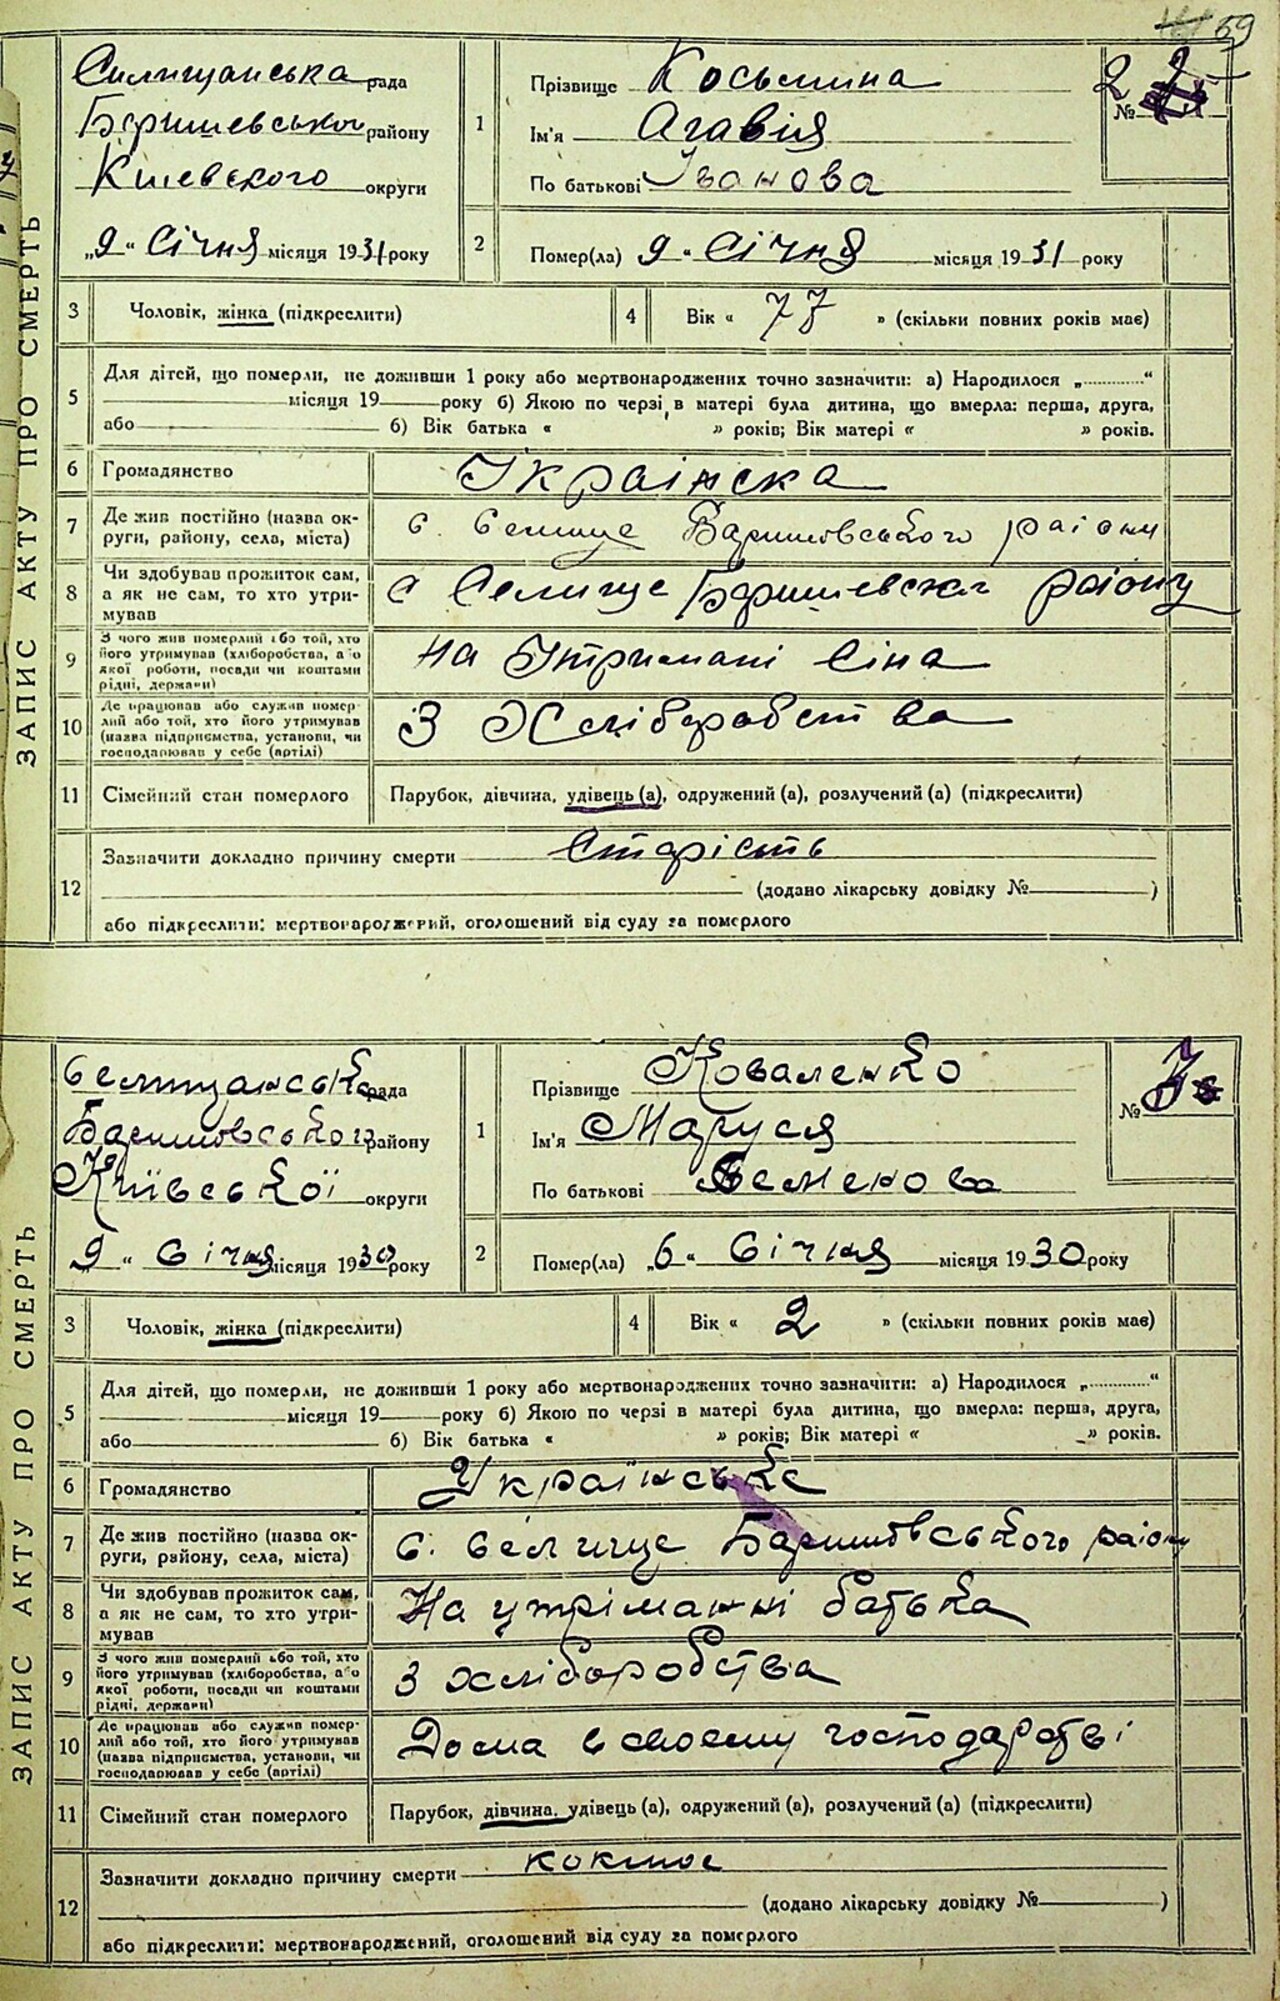 59
ЗАПИС АКТУ ПРО СМЕРТЬ
Силищанська рада
Баришевського району
Киевского округи
„9“ Січня місяця 1931 року
1
Прізвище Косьмина
Ім'я Агавія
По батькові Іванова
№ 2
2
Помер(ла) 9 “ Січня місяця 1931 року
3 Чоловік, жінка (підкреслити)
4 Вік « 77 » (скільки повних років має)
5
Для дітей, що померли, не доживши 1 року або мертвонароджених точно зазначити: а) Народилося „ “
місяця 19 року б) Якою по черзі в матері була дитина, що вмерла: перша, друга,
або б) Вік батька « » років; Вік матері « » років.
6 Громадянство Українска
7 Де жив постійно (назва ок-
руги, району, села, міста)
с. Селище Баришовського раіони
8 Чи здобував прожиток сам,
а як не сам, то хто утри-
мував
с Селище Баришевског раіону
9 З чого жив померлий або той, хто
його утримував (хліборобства, або
якої роботи, посади чи коштами
рідні, держави)
на Утримані Сіна
10 Де працював або служив помер-
лий або той, хто його утримував
(назва підприємства, установи, чи
господарював у себе (артілі)
З Хліборобства
11 Сімейний стан померлого Парубок, дівчина, удівець (а), одружений (а), розлучений (а) (підкреслити)
12
Зазначити докладно причину смерти Старість
(додано лікарську довідку № )
або підкреслити: мертвонароджений, оголошений від суду за померлого
ЗАПИС АКТУ ПРО СМЕРТЬ
Селищанська рада
Баришовського району
Київської округи
„9“ Січня місяця 1930 року
1
Прізвище Коваленко
Ім'я Маруся
По батькові Семенова
№ 3
2
Помер(ла) „6“ Січня місяця 1930 року
3 Чоловік, жінка (підкреслити)
4 Вік « 2 » (скільки повних років має)
5
Для дітей, що померли, не доживши 1 року або мертвонароджених точно зазначити: а) Народилося „ “
місяця 19 року б) Якою по черзі в матері була дитина, що вмерла: перша, друга,
або б) Вік батька « » років; Вік матері « » років.
6 Громадянство Українське
7 Де жив постійно (назва ок-
руги, району, села, міста)
С. Селище Баришовського раіону
8 Чи здобував прожиток сам,
а як не сам, то хто утри-
мував
На утріманні батька
9 З чого жив померлий або той, хто
його утримував (хліборобства, або
якої роботи, посади чи коштами
рідні, держави)
З хліборобства
10 Де працював або служив помер-
лий або той, хто його утримував
(назва підприємства, установи, чи
господарював у себе (артілі)
Дома в своєму господарстві
11 Сімейний стан померлого Парубок, дівчина, удівець (а), одружений (а), розлучений (а) (підкреслити)
12
Зазначити докладно причину смерти коклюс
(додано лікарську довідку № )
або підкреслити: мертвонароджений, оголошений від суду за померлого